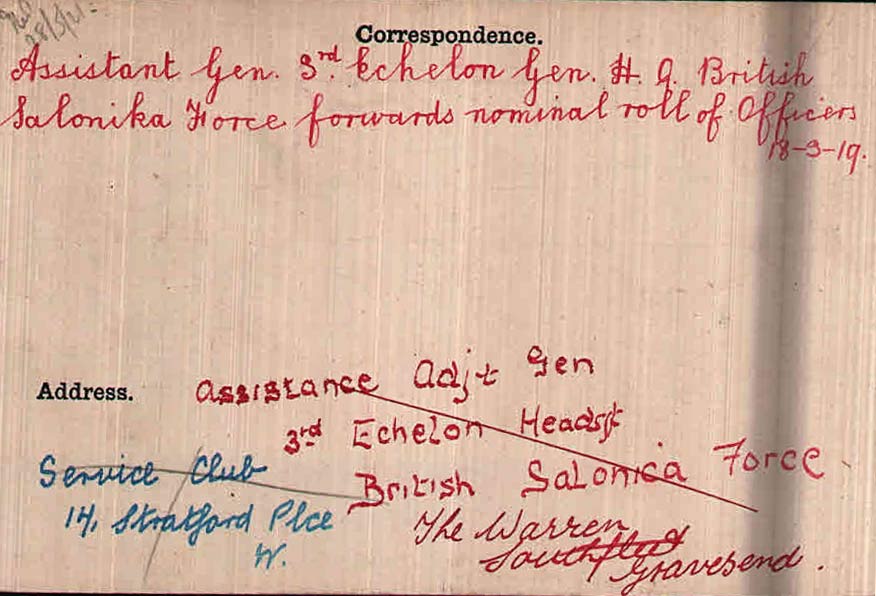 28/5/21.
Correspondence.
Assistant Gen. 3rd. Echelon Gen. H. Q. British
Salonika Force forwards nominal roll of Officers
18-3-19.
Address.
Assistance Adjt Gen
3rd Echelon Headqt
British Salonica Force
Service Club
14, Stratford Plce
W.
The Warren
Gravesend.